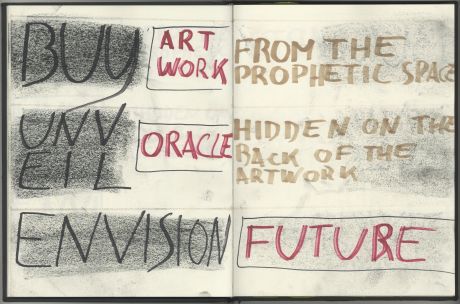 BUY ART WORK FROM THE PROPHETIC SPACE
UNVEIL ORACLE HIDDEN ON THE BACK OF THE ARTWORK
ENVISION FUTURE